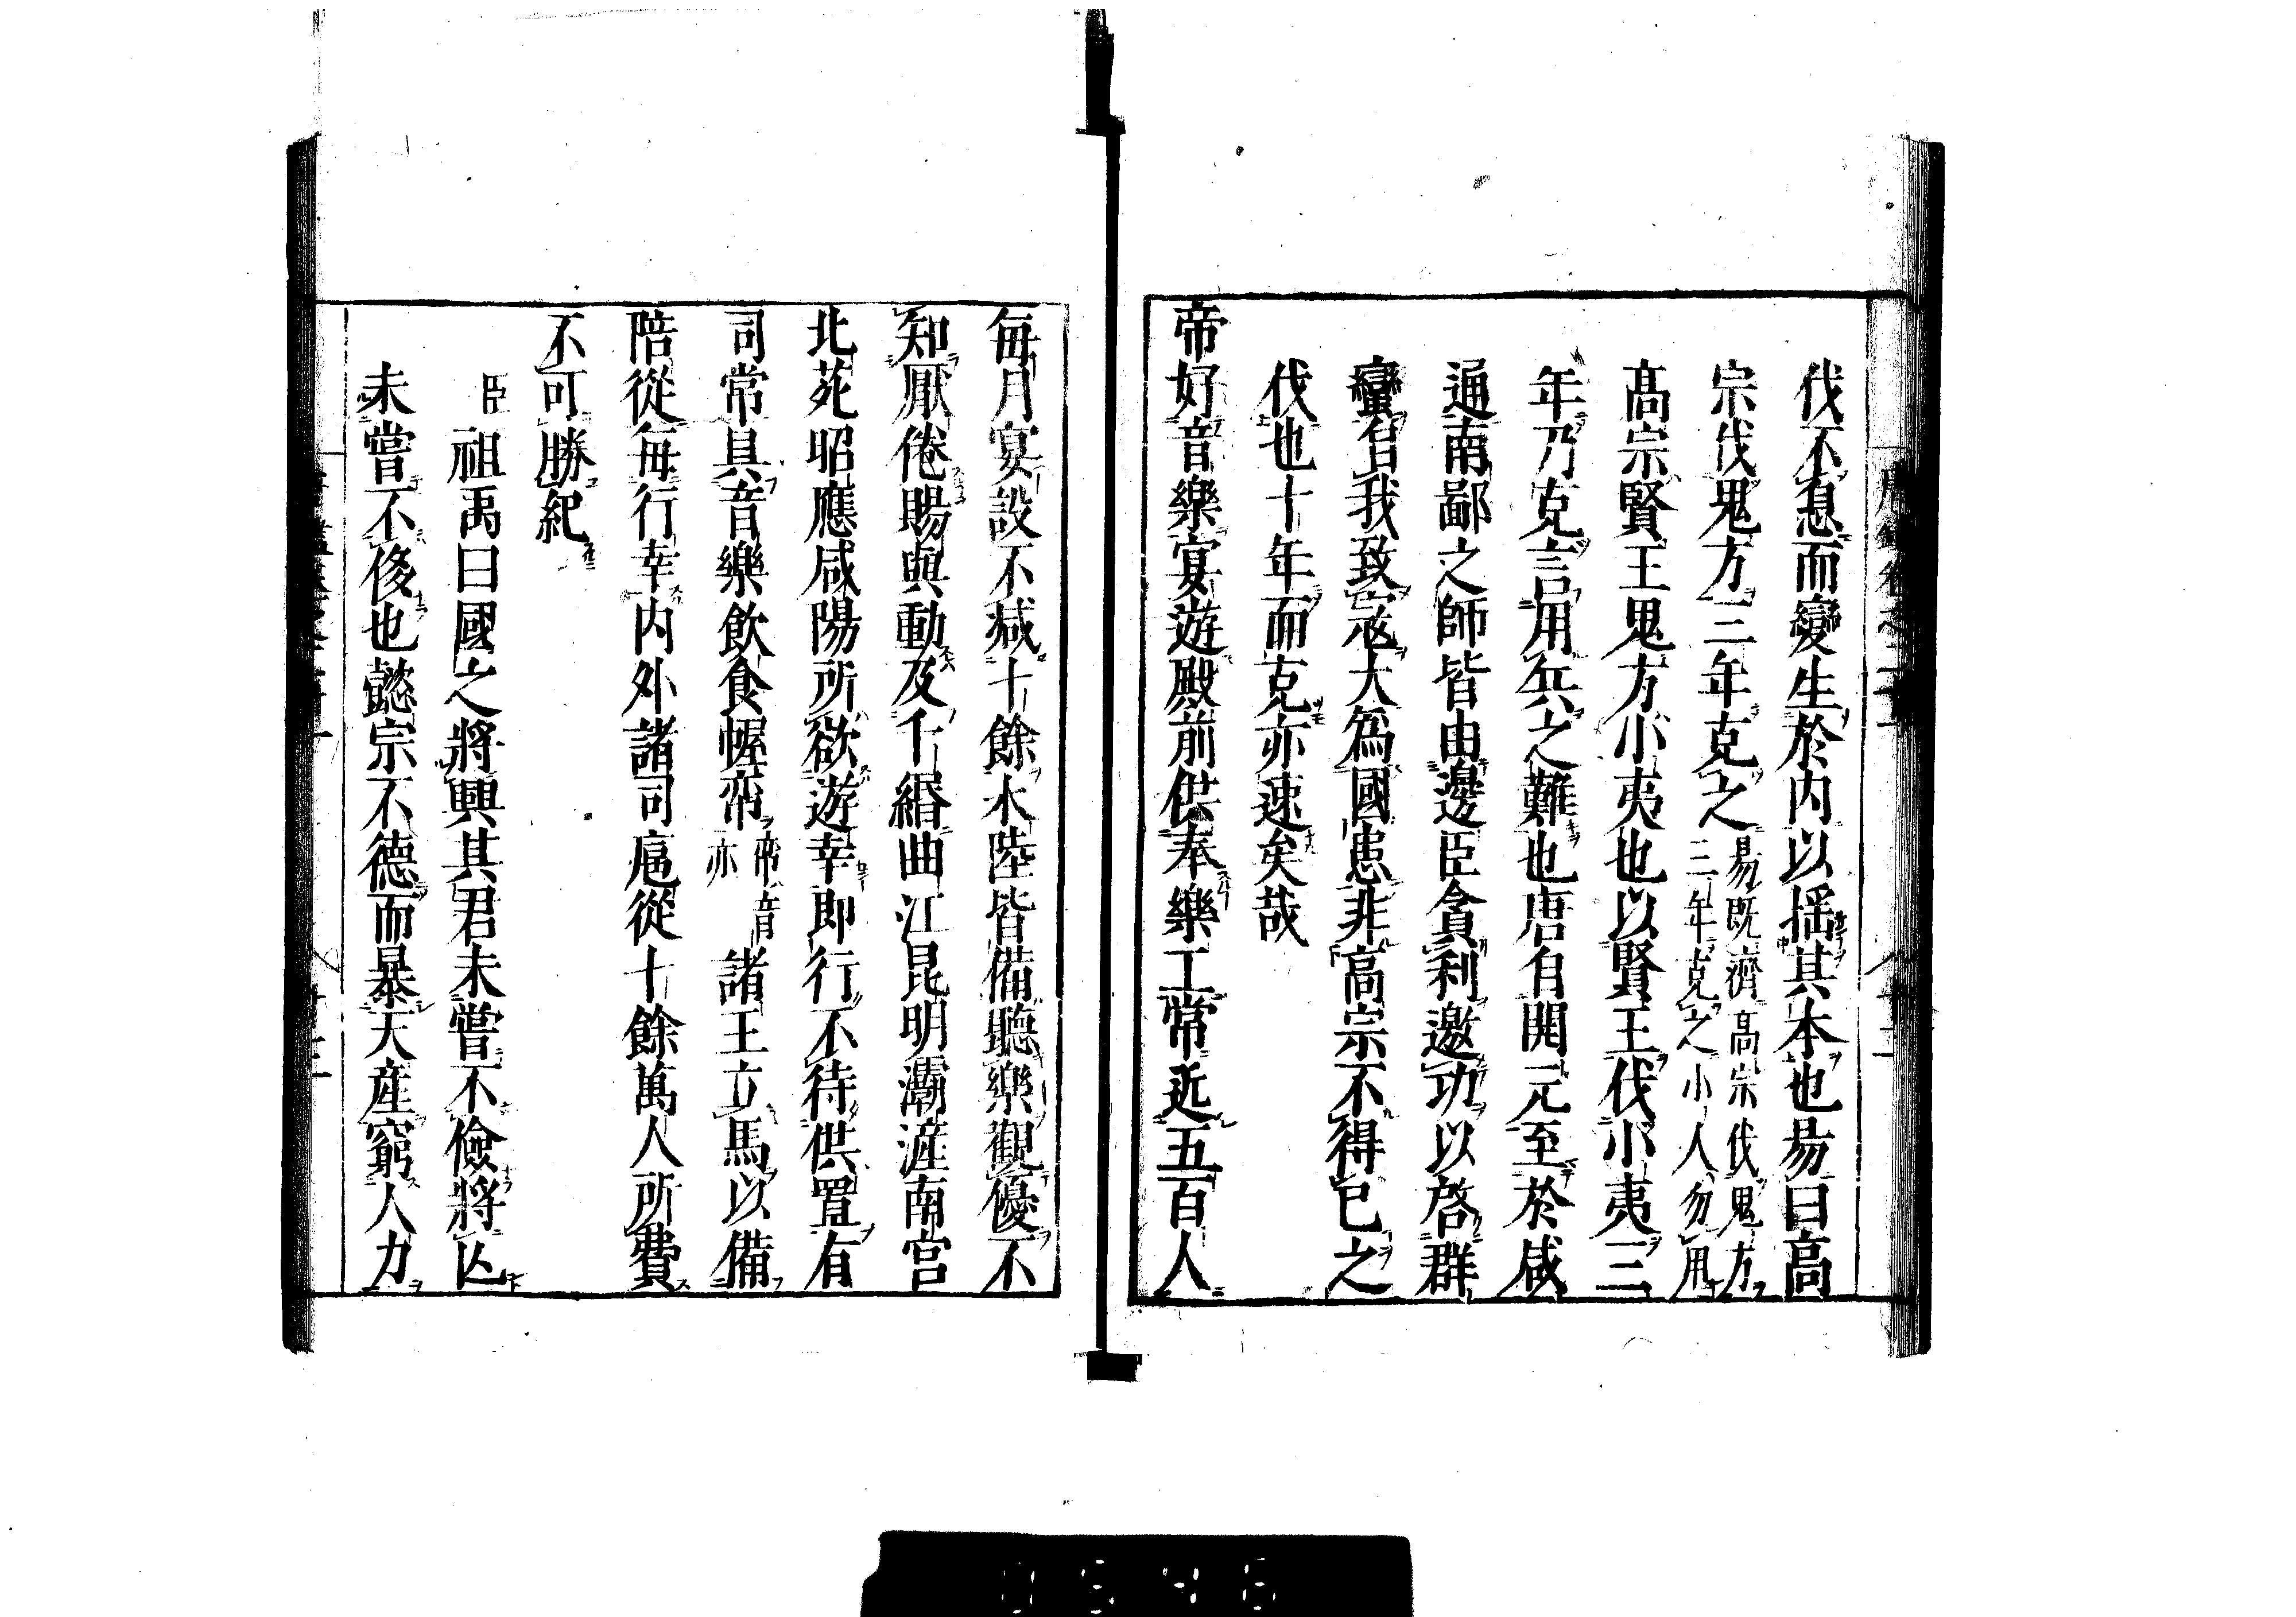 伐不息而變生於内以揺其本也易曰高
宗伐鬼方三年克之易既濟高宗伐鬼方三年克之小人勿用
髙宗賢王鬼方小夷也以賢王伐小夷三
年乃克言用兵之難也唐自開元至於咸
通南鄙之師皆由邊臣貪利邀功以啓群
蠻自我致寇大為國患非高宗不得已之
伐也十年而克亦速矣哉
帝好音樂宴遊殿前供奉樂工常近五百人
毎月宴設不減十餘水陸皆備聽樂觀優不
知厭倦賜與動及千緡曲江昆明灞滻南宫
北苑昭應咸陽所欲遊幸即行不待供置有
司常具音樂飲食幄帟帟音亦諸王立馬以備
陪從毎行幸内外諸司扈從十餘萬人所費
不可勝紀
臣祖禹曰國之將興其君未嘗不儉將亾
未嘗不侈也懿宗不德而暴天産窮人力